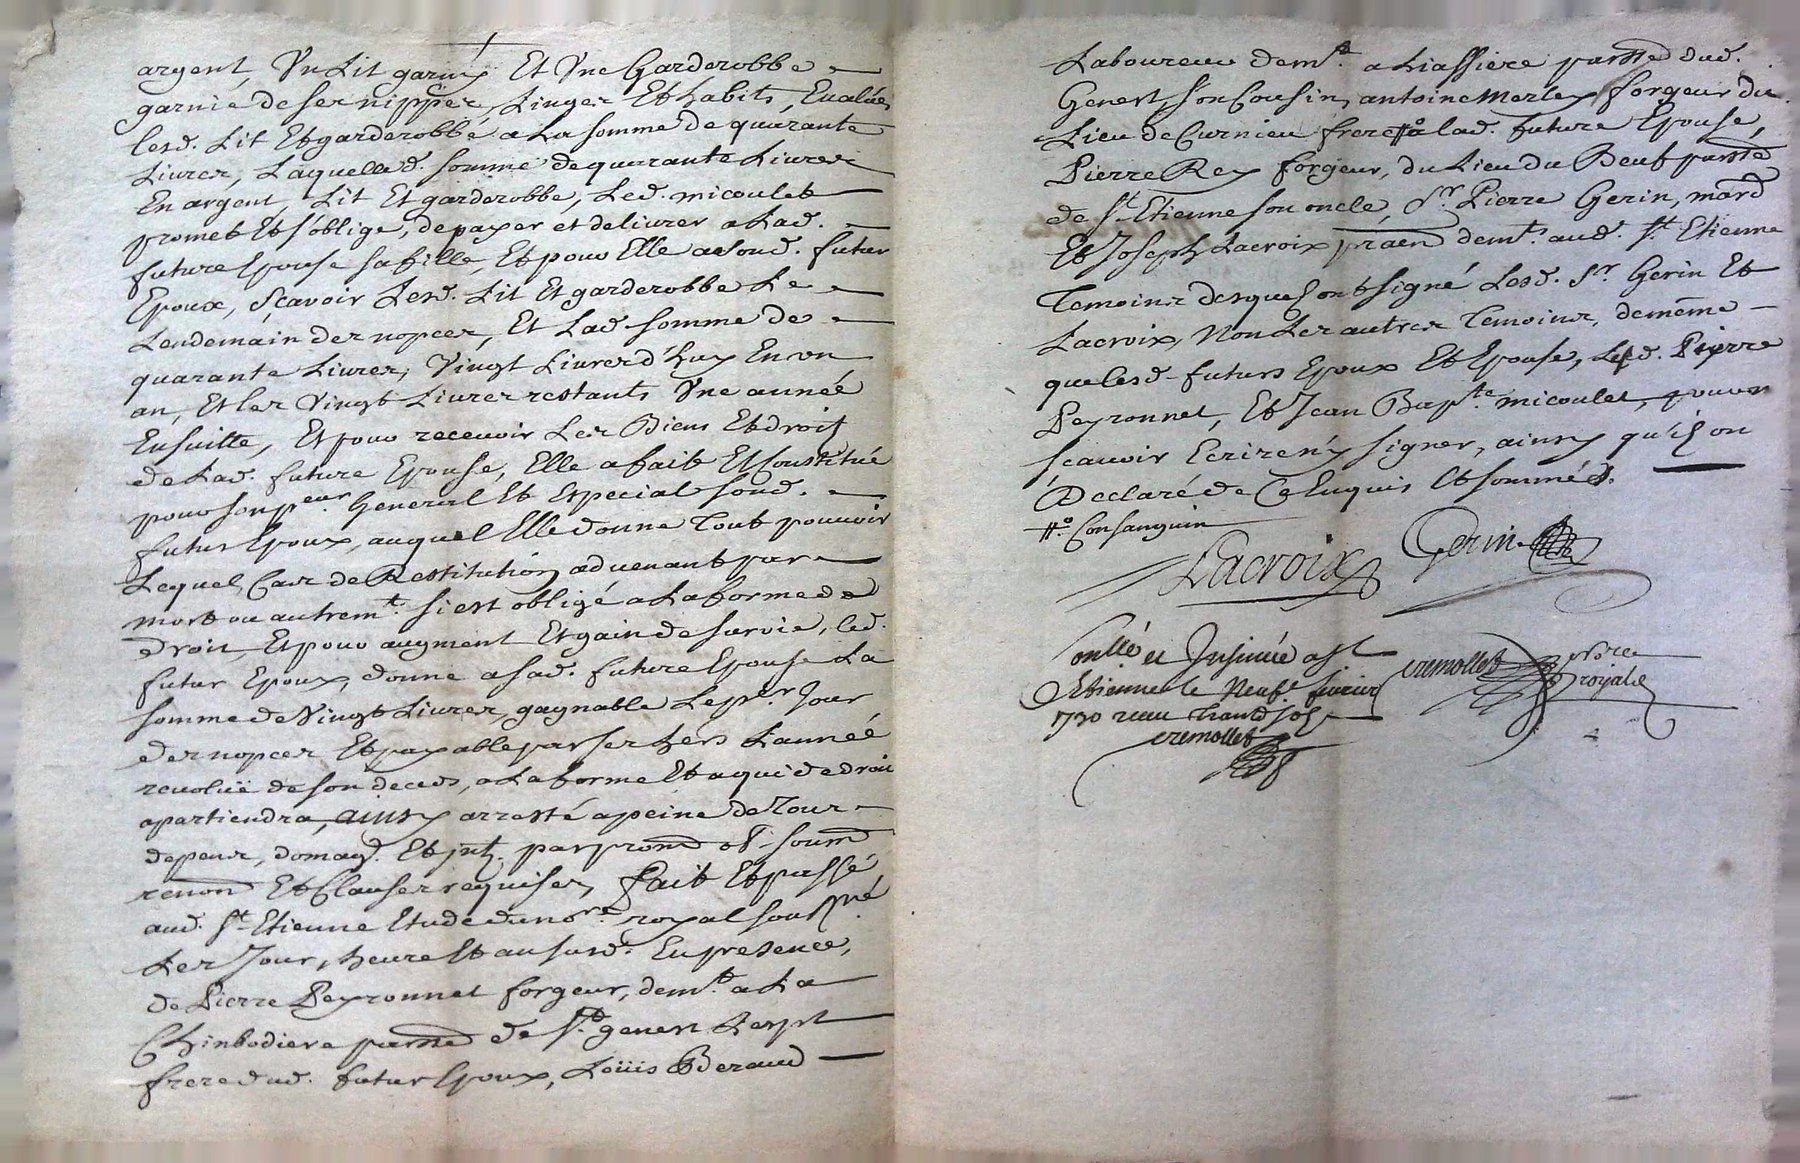 argent, Un Lit garny Et Une Garderobbe
garnie de ses nippes, Linges Et habits, Evalués
lesd. Lit Et garderobbe a La somme de quarante
Livres, Laquelle d. somme de quarante Livres
En argent, Lit Et garderobbe, Led. micoulet
promet Et s'oblige, de payer et delivrer a Lad.
future Epouse sa fille, Et pour Elle a sond. futur
Epoux, sçavoir Lesd. Lit Et garderobbe Le
Lendemain des nopces, Et Lad somme de
quarante Livres, Vingt Livres d'huy En un
an, Et les Vingt Livres restants Une année
Ensuitte, Et pour recevoir Les Biens Et droits
de Lad. future Epouse, Elle a fait Et Constitué
pour son p.eur General Et Especial sond.
futur Epoux, auquel Elle donne Tout pouvoir
Lequel Cas de Restitution advenant par
mort ou autrem.t s'est obligé a La forme de
droit, Et pour augment Et gain de survie, led.
futur Epoux, donne a sad. future Epouse La
somme de Vingt Livres, gagnable Le pr.er Jour
des nopces Et payable par ses hers L'année
revoluë de son deces, a La forme Et a qui de droit
apartiendra, ainsy arresté a peine de Tour
depens, domag. Et jnt. par prom ob. soum
renon Et Clauses requises, fait Et passé
aud. St. Etienne Etude du no.re royal soussigné
Les Jour, heure Et an susd. En presence,
de Pierre Peyronnet forgeur, dem.t a La
Chinbodiere parsse de St. genest Lerpt
frere dud. futur Epoux, Loüis Beraud
Laboureur dem.t a Liassiere parsse dud.
Genest, son Cousin, antoine Merley forgeur du
Lieu de Curnieu frere #o a lad. future Epouse,
Pierre Rey forgeur, du Lieu du Beuf parsse
de St. Etienne son oncle, Sr. Pierre Gerin, mard
Et Joseph Lacroix praen dem.ts aud. St. Etienne
Temoins desquels ont signé Lesd. Sr. Gerin Et
Lacroix, Non Les autres Temoins, de meme
que lesd. futurs Epoux Et Epouse, Led. Pierre
Peyronnet, Et Jean Bap.te micoulet, pour non
sçavoir Ecrire n'y signer, ainsy qu'ils on
Declaré de Ce Enquis Et sommés.
#o. Consanguin
Lacroix Gerin
Conllé et Insinüé a St
Etienne le Neuf.e fevrier
1730 receu Trante sols
cremollet
cremollet no.re
royale